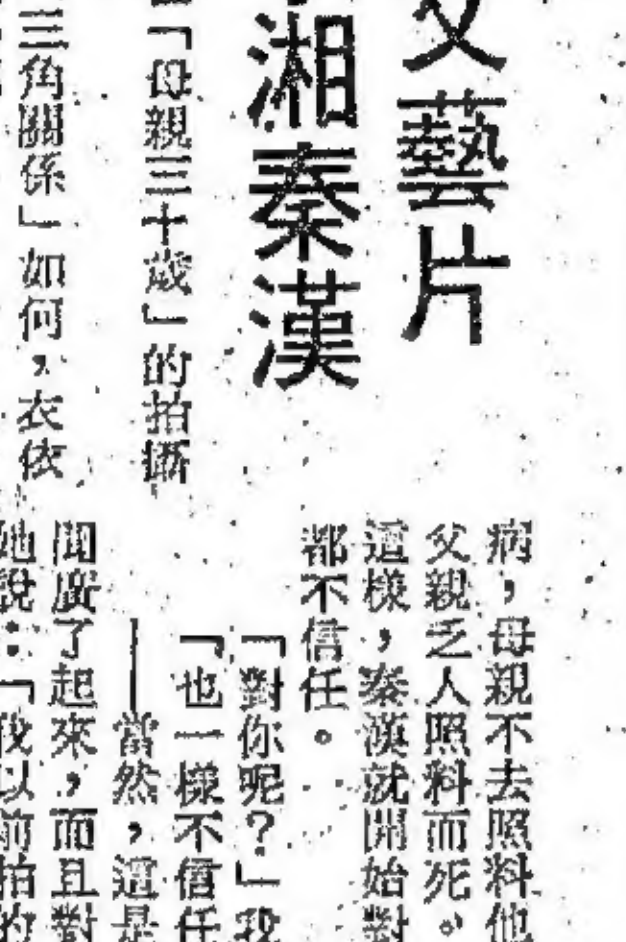 文藝片
湘秦漢
「母親三十歲」的拍攝
三角關係」如何，衣依
病，母親不去照料他
父親乏人照料而死。
這樣，秦漢就開始對
都不信任。
「對你呢？」我
「也一樣不信任
——當然，這是
聞廣了起來，而且對
她說：「我以前拍的